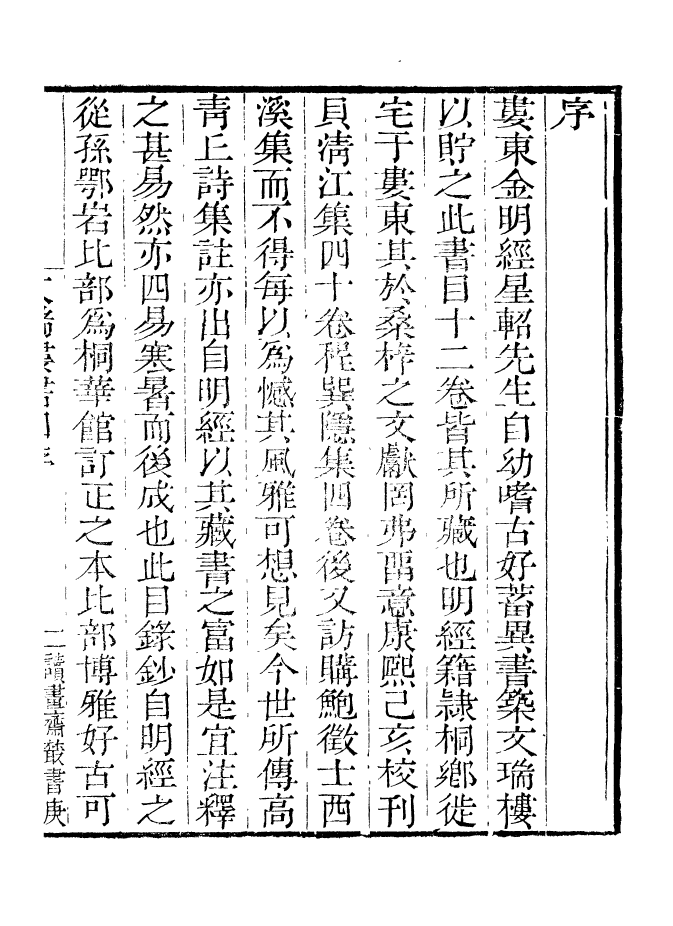 序
婁東金明經星軺先生自幼嗜古好蓄異書築文瑞樓
以貯之此書目十二卷皆其所藏也明經籍隸桐鄉徙
宅于婁東其於桑梓之文獻罔弗畱意康熙己亥校刊
貝清江集四十卷程巽隱集四卷後又訪購鮑徵士西
溪集而不得每以爲憾其風雅可想見矣今世所傳高
青丘詩集註亦出自明經以其藏書之富如是宜注釋
之甚易然亦四易寒暑而後成也此目錄鈔自明經之
從孫鄂岩比部爲桐華館訂正之本比部博雅好古可
二讀畫齋叢書庚